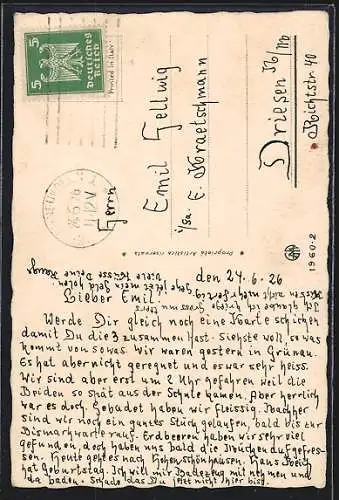 5 5
Deutsches
Reich
24.6.26
Herrn
Emil Hellwig
i/sa. E. Kraetschmann
Driesen N/M
Richtstr 40
Proprietà Artistica riservata
1960-2
den 24.6.26
Lieber Emil.
Werde Dir gleich noch eine Karte schicken
damit Du die 3 zusammen hast. Siehste woll, so was
kommt von sowas. Wir waren gestern in Grünau.
Es hat aber nicht geregnet und es war sehr heiss.
Wir sind aber erst um 2 Uhr gefahren weil die
Beiden so spät aus der Schule kamen. Aber herrlich
war es doch. Gebadet haben wir fleissig. Nachher
sind wir noch ein gantes Stück gelaufen, bald bis zur
Bismarckwarte rauf. Erdbeeren haben wir sehr viel
gefunden, doch haben uns bald die Mücken aufgefres-
sen. Heute geht es nach Hohenschönhausen. Hans
hat Geburtstag. Ich will mir Badezeug mit nehmen und
da baden. Schade das Du jetzt nicht hier bist.
Viele Küsse Deine